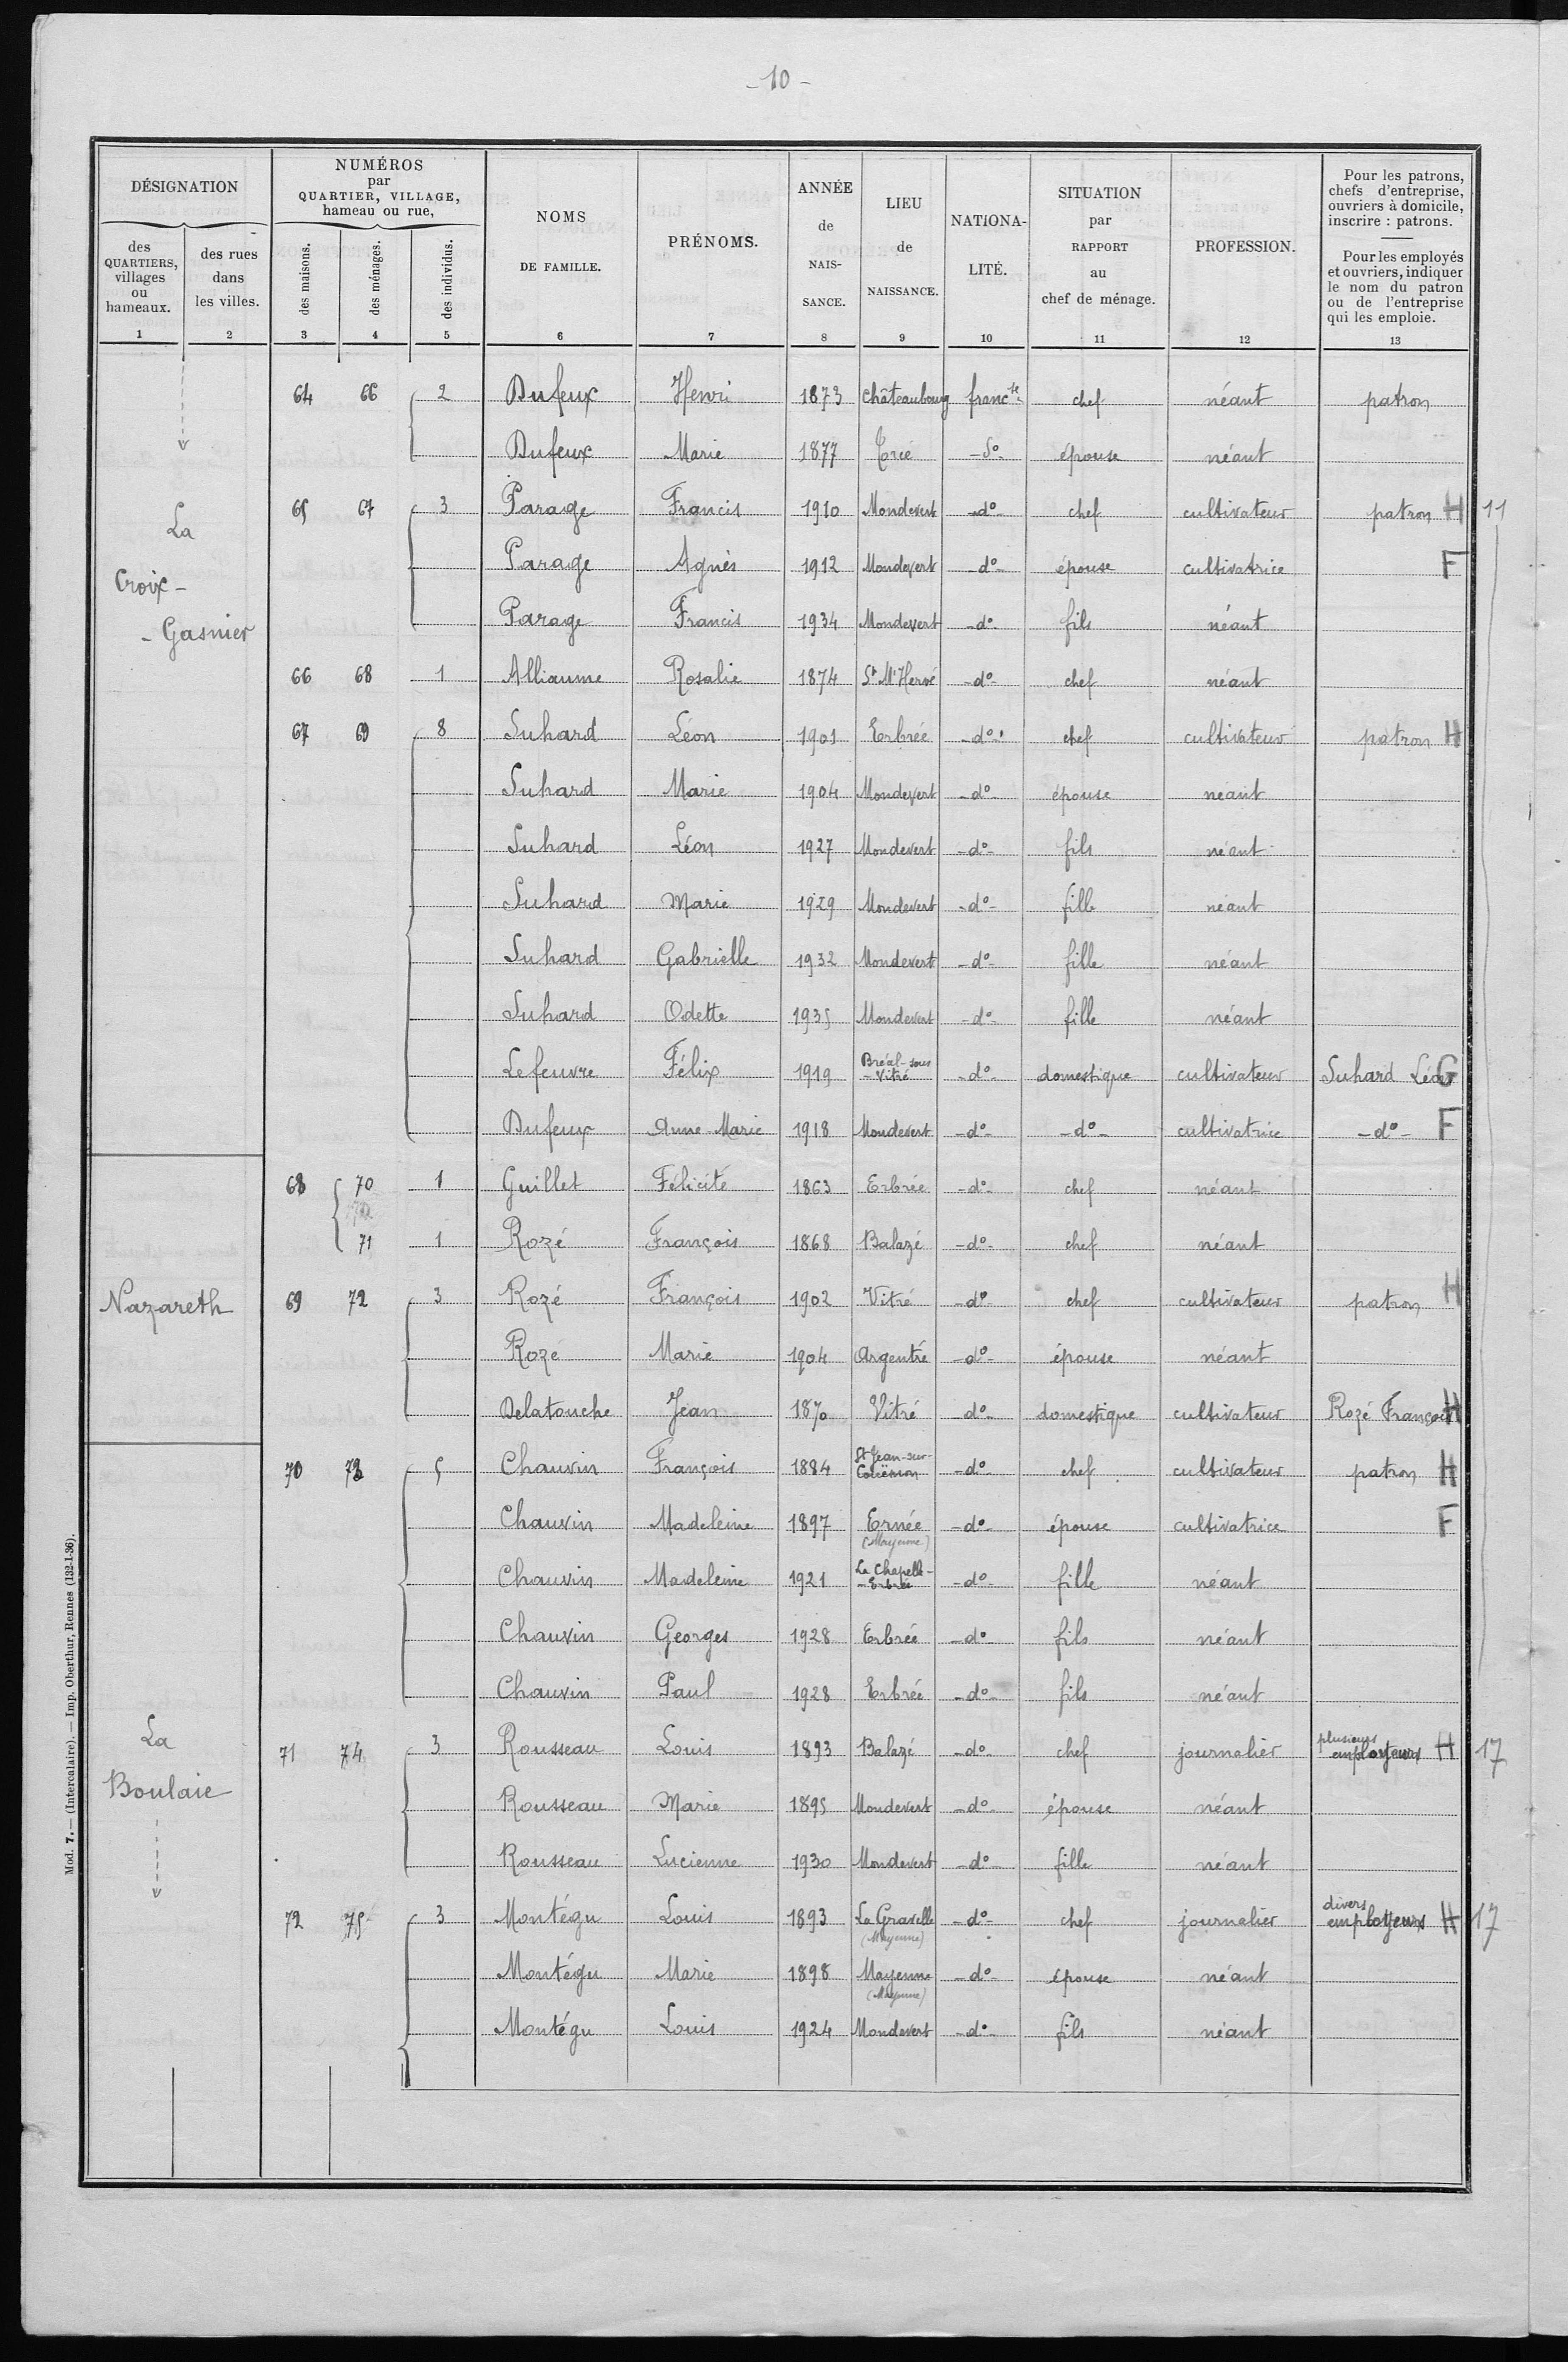 - 10 -
DÉSIGNATION
des QUARTIERS, villages ou hameaux.
des rues dans les villes.
NUMÉROS par QUARTIER, VILLAGE, hameau ou rue,
des maisons.
des ménages.
des individus.
NOMS DE FAMILLE.
PRÉNOMS.
ANNÉE de NAIS-SANCE.
LIEU de NAISSANCE.
NATIONA-LITÉ.
SITUATION par RAPPORT au chef de ménage.
PROFESSION.
Pour les patrons, chefs d'entreprise, ouvriers à domicile, inscrire : patrons.
Pour les employés et ouvriers, indiquer le nom du patron ou de l'entreprise qui les emploie.
1 2 3 4 5 6 7 8 9 10 11 12 13
64 66 2 Dufeux Henri 1873 Châteaubourg franc se chef néant patron
Dufeux Marie 1877 -do- épouse néant
La Croix-
- Gasnier
65 67 3 Parage Francis 1910 Mondevert -do- chef cultivateur patron H 11
Parage Agnès 1912 Mondevert -do- épouse cultivatrice F
Parage Francis 1934 Mondevert -do- fils néant
66 68 1 Alliaume Rosalie 1874 St M'Hervé -do- chef néant
67 69 8 Suhard Léon 1901 Erbrée -do- chef cultivateur patron H
Suhard Marie 1904 Mondevert -do- épouse néant
Suhard Léon 1927 Mondevert -do- fils néant
Suhard Marie 1929 Mondevert -do- fille néant
Suhard Gabrielle 1932 Mondevert -do- fille néant
Suhard Odette 1935 Mondevert -do- fille néant
Lefeuvre Félix 1919 Bréal-sous-Vitré -do- domestique cultivateur Suhard Léon G
Dufeux Anne-Marie 1918 Mondevert -do- -do- cultivatrice -do- F
68 70 1 Guillet Félicité 1863 Erbrée -do- chef néant
71 1 Rozé François 1868 Balazé -do- chef néant
Nazareth 69 72 3 Rozé François 1902 Vitré -do- chef cultivateur patron H
Rozé Marie 1904 Argentré -do- épouse néant
Delatouche Jean 1870 Vitré -do- domestique cultivateur Rozé François H
70 73 5 Chauvin François 1884 St Jean-sur-Couësnon -do- chef cultivateur patron H
Chauvin Madeleine 1897 Ernée (Mayenne) -do- épouse cultivatrice F
Chauvin Madeleine 1921 La Chapelle-Erbrée -do- fille néant
Chauvin Georges 1928 Erbrée -do- fils néant
Chauvin Paul 1928 Erbrée -do- fils néant
La Boulaie
71 74 3 Rousseau Louis 1893 Balazé -do- chef journalier plusieurs employeurs H 17
Rousseau Marie 1895 Mondevert -do- épouse néant
Rousseau Lucienne 1930 Mondevert -do- fille néant
72 75 3 Montégu Louis 1893 La Gravelle (Mayenne) -do- chef journalier divers employeurs H 17
Montégu Marie 1898 Mayenne (Mayenne) -do- épouse néant
Montégu Louis 1924 Mondevert -do- fils néant
Mod. 7. — (Intercalaire). — Imp. Oberthur, Rennes (132-1-36).